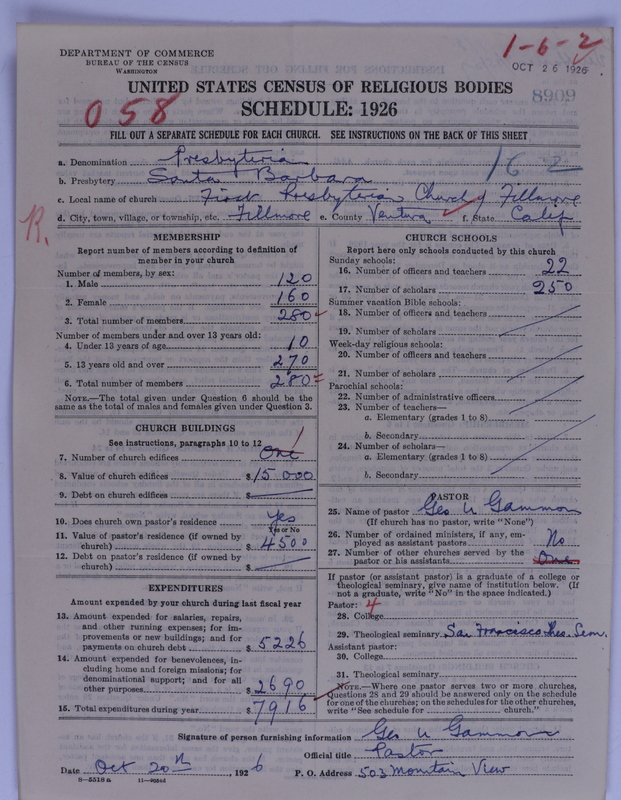 DEPARTMENT OF COMMERCE
BUREAU OF THE CENSUS
WASHINGTON
1-6-2
OCT 26 1926
UNITED STATES CENSUS OF RELIGIOUS BODIES
8909
058
SCHEDULE: 1926
FILL OUT A SEPARATE SCHEDULE FOR EACH CHURCH. SEE INSTRUCTIONS ON THE BACK OF THIS SHEET
a. Denomination Presbyteria
162
b. Presbytery Santa Barbara
c. Local name of church First Presbyterian Church of Fillmore
d. City, town, village, or township, etc. Fillmore e. County Ventura f. State Calif
R.
MEMBERSHIP
Report number of members according to definition of
member in your church
Number of members, by sex:
1. Male 120
2. Female 160
3. Total number of members 280
Number of members under and over 13 years old:
4. Under 13 years of age 10
5. 13 years old and over 270
6. Total number of members 280
NOTE.—The total given under Question 6 should be
same as the total of males and females given under Question 3.
CHURCH BUILDINGS
See instructions, paragraphs 10 to 12
7. Number of church edifices One 1
8. Value of church edifices $ 15 000
9. Debt on church edifices $
10. Does church own pastor's residence Yes
Yes or No
11. Value of pastor's residence (if owned by
church) $ 4500
12. Debt on pastor's residence (if owned by
church) $
EXPENDITURES
Amount expended by your church during last fiscal year
13. Amount expended for salaries, repairs,
and other running expenses; for im-
provements or new buildings; and for
payments on church debt $ 5226
14. Amount expended for benevolences, in-
cluding home and foreign missions; for
denominational support; and for all
other purposes $ 2690
15. Total expenditures during year $ 7916
CHURCH SCHOOLS
Report here only schools conducted by this church
Sunday schools:
16. Number of officers and teachers 22
17. Number of scholars 250
Summer vacation Bible schools:
18. Number of officers and teachers
19. Number of scholars
Week-day religious schools:
20. Number of officers and teachers
21. Number of scholars
Parochial schools:
22. Number of administrative officers
23. Number of teachers—
a. Elementary (grades 1 to 8)
b. Secondary
24. Number of scholars—
a. Elementary (grades 1 to 8)
b. Secondary
PASTOR
25. Name of pastor Geo N Gammon
(If church has no pastor, write "None")
26. Number of ordained ministers, if any, em-
ployed as assistant pastors No
27. Number of other churches served by the
pastor or his assistants One
If pastor (or assistant pastor) is a graduate of a college or
theological seminary, give name of institution below. (If
not a graduate, write "No" in the space indicated.)
Pastor: 4
28. College
29. Theological seminary San Francisco Theo. Sem.
Assistant pastor:
30. College
31. Theological seminary
NOTE.—Where one pastor serves two or more churches,
Questions 28 and 29 should be answered only on the schedule
for one of the churches; on the schedules for the other churches,
write "See schedule for church."
Signature of person furnishing information Geo N Gammon
Official title Pastor
Date Oct 20th, 1926 P. O. Address 503 Mountain View
8—5518a 11—9054d